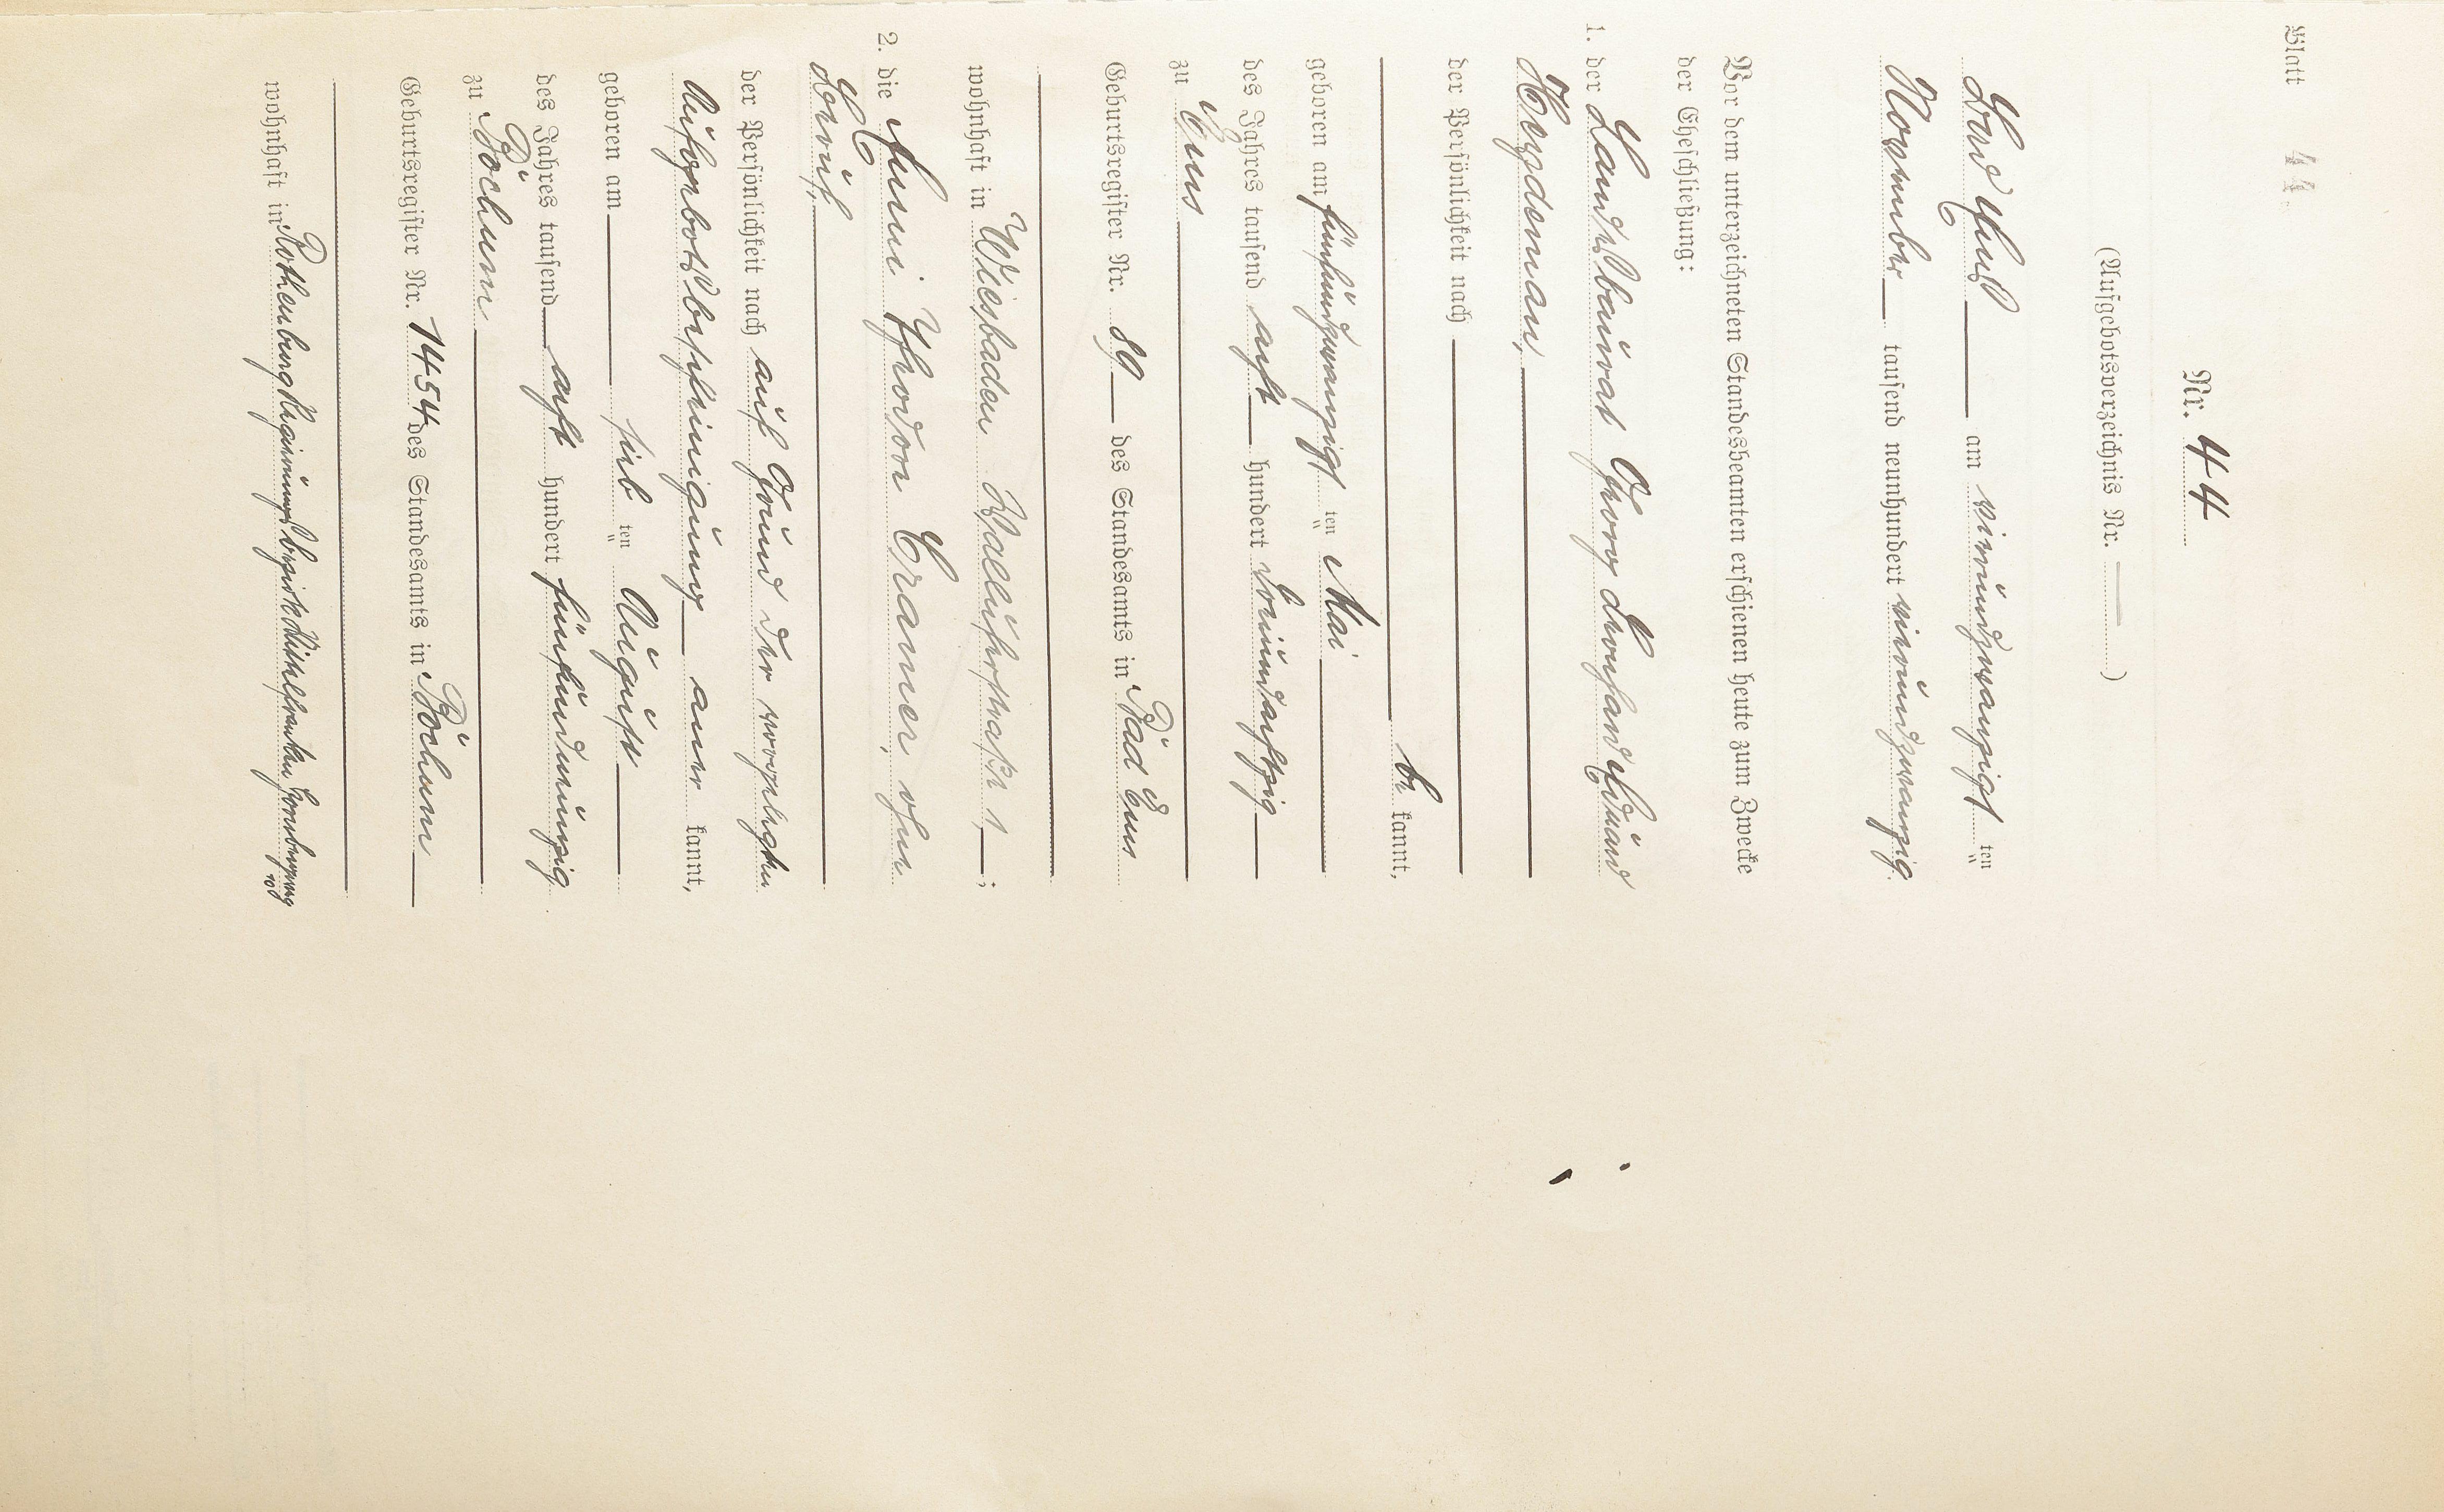 Blatt 44
Nr. 44
(Aufgebotsverzeichnis Nr. — )
Bad Ems am vierundzwanzigsten
November tausend neunhundert vierundzwanzig.
Vor dem unterzeichneten Standesbeamten erschienen heute zum Zwecke
der Eheschließung:
1. der Landesbaurat Georg Bernhard Eduard
Heydeman,
der Persönlichkeit nach
be kannt,
geboren am fünfundzwanzigsten Mai
des Jahres tausend acht hundert dreiundachtzig
zu Ems
Geburtsregister Nr. 89 des Standesamts in Bad Ems
wohnhaft in Wiesbaden Walluferstraße 1;
2. die Anni Cramer, ohne
Beruf,
der Persönlichkeit nach auf Grund der vorgelegten
Aufgebotsbescheinigung aner kannt,
geboren am sieb ten August
des Jahres tausend acht hundert fünfundneunzig
zu Bochum
Geburtsregister Nr. 1454 des Standesamts in Bochum
wohnhaft in Rothenburg Regierungsbezirk Mittelfranken